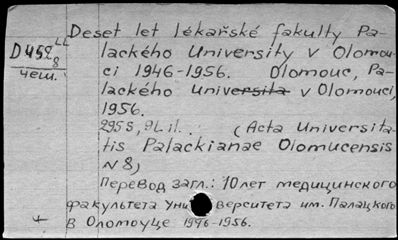 Deset let lékařské fakulty Pa-
D452 LL
8
lackého University v Olomou-
чеш.
ci 1946-1956. Olomouc, Pa-
lackého Universita v Olomouci,
1956.
295 S, 9 L. il. (Acta Universita-
tis Palackianae Olomucensis
N8)
Перевод загл.: 10 лет медицинского
факультета Университета им. Палацкого
в Оломоуце 1946-1956.